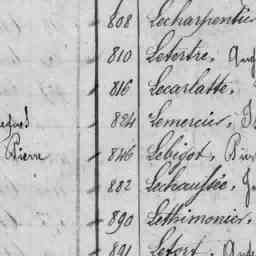 808 Lecharpentier
810 Letertre,
816 Lecarlatte,
824 Lemercier,
Pierre 846 Lebigot,
882 Lechaussée,
890 Lethimonier,
891 Lefort,